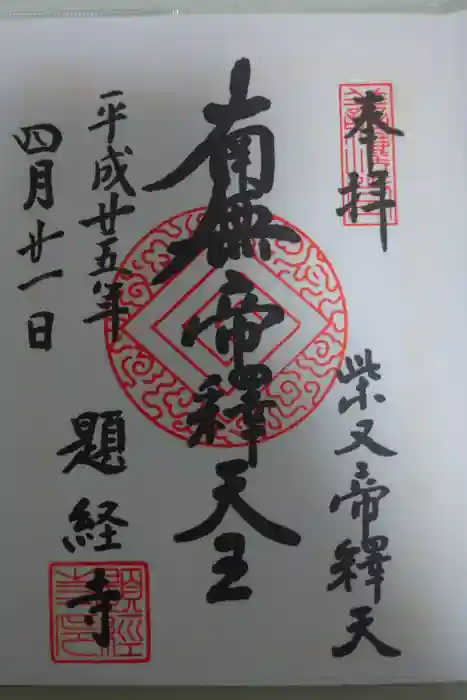 奉拝
柴又帝釋天
南無帝釋天王
平成廿五年
四月廿一日
題経寺